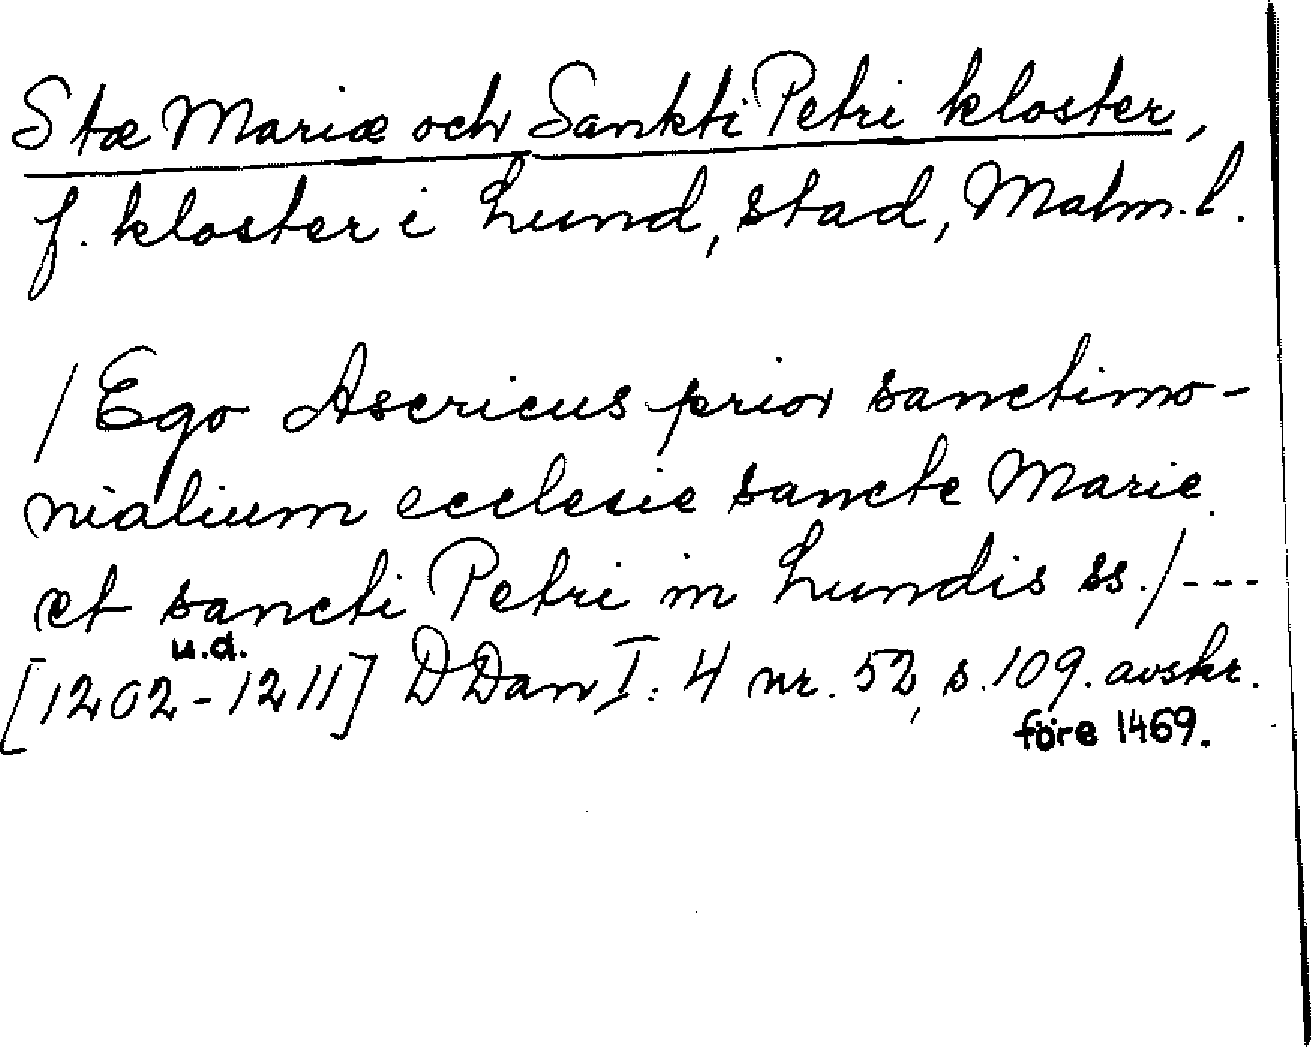 Stæ Mariæ och Sankti Petri kloster,
f. kloster i Lund, stad, Malm. l.
/Ego Ascricus prior sanctimo-
nialium ecclesie sancte Marie
et sancti Petri in Lundis ss./---
u.d.
[1202-1211] DDan I:4 nr. 52, s. 109. avskr.
före 1469.